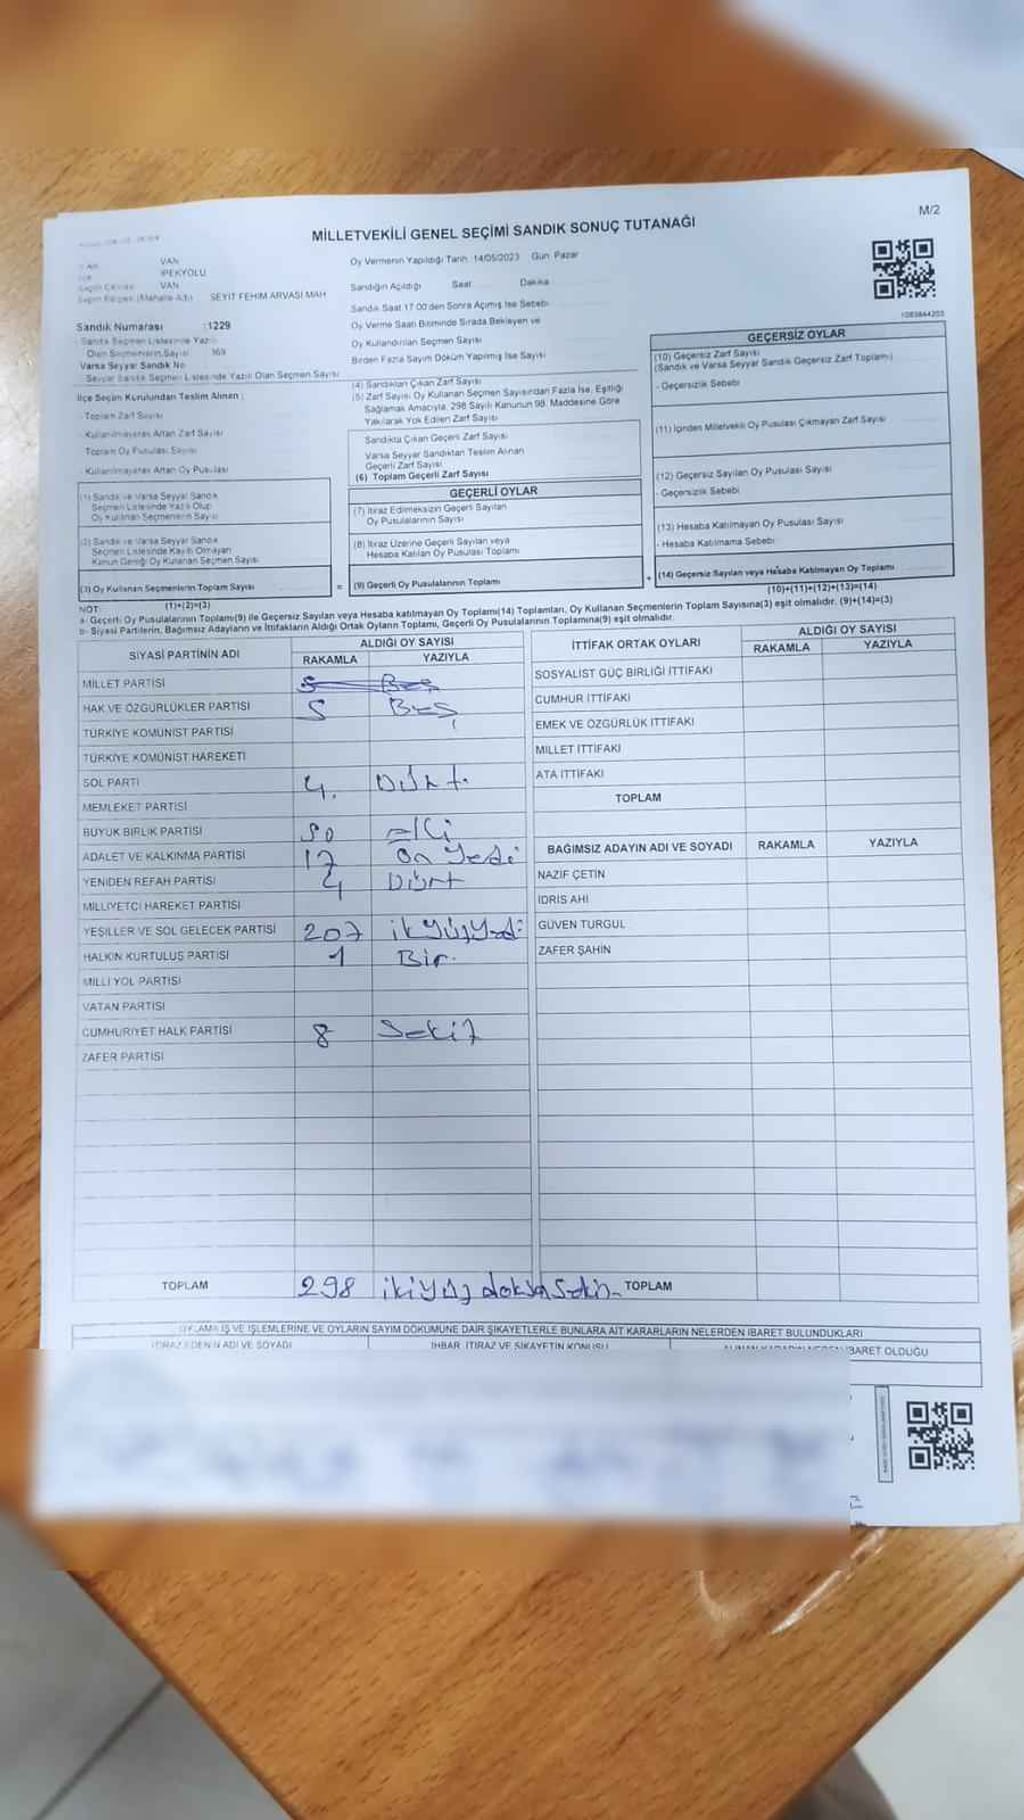 M/2
MİLLETVEKİLİ GENEL SEÇİMİ SANDIK SONUÇ TUTANAĞI
VAN
İPEKYOLU
VAN
SEYİT FEHİM ARVASİ MAH
Sandık Numarası : 1229
Sandık Seçmen Listesinde Yazılı
Olan Seçmenlerin Sayısı 369
Varsa Seyyar Sandık No
Seyyar Sandık Seçmen Listesinde Yazılı Olan Seçmen Sayısı
İlçe Seçim Kurulundan Teslim Alınan :
- Toplam Zarf Sayısı
- Kullanılmayarak Artan Zarf Sayısı
Toplam Oy Pusulası Sayısı
- Kullanılmayarak Artan Oy Pusulası
(1) Sandık ve Varsa Seyyar Sandık
Seçmen Listesinde Yazılı Olup
Oy Kullanan Seçmenlerin Sayısı
(2) Sandık ve Varsa Seyyar Sandık
Seçmen Listesinde Kayıtlı Olmayan
Kanun Gereği Oy Kullanan Seçmen Sayısı
(3) Oy Kullanan Seçmenlerin Toplam Sayısı
(1)+(2)=(3)
Oy Vermenin Yapıldığı Tarih 14/05/2023 Gün Pazar
Sandığın Açıldığı Saat Dakika
Sandık Saat 17:00'den Sonra Açılmış İse Sebebi
Oy Verme Saati Bitiminde Sırada Bekleyen ve
Oy Kullandırılan Seçmen Sayısı
Birden Fazla Sayım Döküm Yapılmış İse Sayısı
(4) Sandıktan Çıkan Zarf Sayısı
(5) Zarf Sayısı Oy Kullanan Seçmen Sayısından Fazla İse, Eşitliği
Sağlamak Amacıyla, 298 Sayılı Kanunun 98. Maddesine Göre
Yakılarak Yok Edilen Zarf Sayısı
Sandıkta Çıkan Geçerli Zarf Sayısı
Varsa Seyyar Sandıktan Teslim Alınan
Geçerli Zarf Sayısı
(6) Toplam Geçerli Zarf Sayısı
GEÇERLİ OYLAR
(7) İtiraz Edilmeksizin Geçerli Sayılan
Oy Pusulalarının Sayısı
(8) İtiraz Üzerine Geçerli Sayılan veya
Hesaba Katılan Oy Pusulası Toplamı
= (9) Geçerli Oy Pusulalarının Toplamı
+
GEÇERSİZ OYLAR
(10) Geçersiz Zarf Sayısı
(Sandık ve Varsa Seyyar Sandık Geçersiz Zarf Toplamı)
- Geçersizlik Sebebi
(11) İçinden Milletvekili Oy Pusulası Çıkmayan Zarf Sayısı
(12) Geçersiz Sayılan Oy Pusulası Sayısı
- Geçersizlik Sebebi
(13) Hesaba Katılmayan Oy Pusulası Sayısı
- Hesaba Katılmama Sebebi
(14) Geçersiz Sayılan veya Hesaba Katılmayan Oy Toplamı
(10)+(11)+(12)+(13)=(14)
NOT:
a- Geçerli Oy Pusulalarının Toplamı(9) ile Geçersiz Sayılan veya Hesaba katılmayan Oy Toplamı(14) Toplamları, Oy Kullanan Seçmenlerin Toplam Sayısına(3) eşit olmalıdır. (9)+(14)=(3)
b- Siyasi Partilerin, Bağımsız Adayların ve İttifakların Aldığı Ortak Oyların Toplamı, Geçerli Oy Pusulalarının Toplamına(9) eşit olmalıdır.
SİYASİ PARTİNİN ADI ALDIĞI OY SAYISI
RAKAMLA YAZIYLA
MİLLET PARTİSİ 5 Beş
HAK VE ÖZGÜRLÜKLER PARTİSİ 5 Beş
TÜRKİYE KOMÜNİST PARTİSİ
TÜRKİYE KOMÜNİST HAREKETİ
SOL PARTİ 4. Dört.
MEMLEKET PARTİSİ
BÜYÜK BİRLİK PARTİSİ 50 Elli
ADALET VE KALKINMA PARTİSİ 17 On yedi
YENİDEN REFAH PARTİSİ 4 Dört
MİLLİYETÇİ HAREKET PARTİSİ
YEŞİLLER VE SOL GELECEK PARTİSİ 207 ikiyüzyedi
HALKIN KURTULUŞ PARTİSİ 1 Bir.
MİLLİ YOL PARTİSİ
VATAN PARTİSİ
CUMHURİYET HALK PARTİSİ 8 Sekiz
ZAFER PARTİSİ
TOPLAM 298 ikiyüz doksan sekiz
İTTİFAK ORTAK OYLARI ALDIĞI OY SAYISI
RAKAMLA YAZIYLA
SOSYALİST GÜÇ BİRLİĞİ İTTİFAKI
CUMHUR İTTİFAKI
EMEK VE ÖZGÜRLÜK İTTİFAKI
MİLLET İTTİFAKI
ATA İTTİFAKI
TOPLAM
BAĞIMSIZ ADAYIN ADI VE SOYADI RAKAMLA YAZIYLA
NAZİF ÇETİN
İDRİS AHİ
GÜVEN TURGUL
ZAFER ŞAHİN
TOPLAM
İŞ VE İŞLEMLERİNE VE OYLARIN SAYIM DÖKÜMÜNE DAİR ŞİKAYETLERLE BUNLARA AİT KARARLARIN NELERDEN İBARET BULUNDUKLARI
ADI VE SOYADI İHBAR, İTİRAZ VE ŞİKAYETİN KONUSU İBARET OLDUĞU